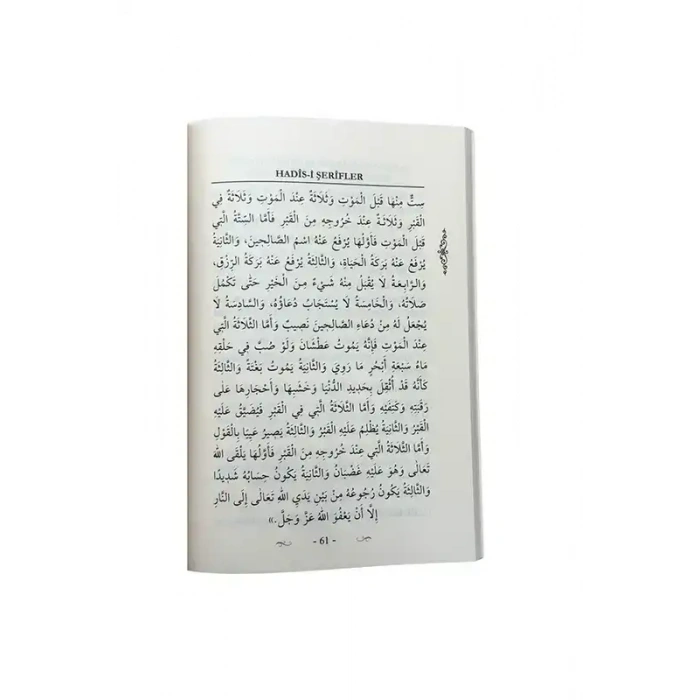 HADÎS-İ ŞERİFLER
سِتٌّ مِنْهَا قَبْلَ الْمَوْتِ وَثَلَاثَةٌ عِنْدَ الْمَوْتِ وَثَلَاثَةٌ فِي
الْقَبْرِ وَثَلَاثَةٌ عِنْدَ خُرُوجِهِ مِنَ الْقَبْرِ فَأَمَّا السِّتَّةُ الَّتِي
قَبْلَ الْمَوْتِ فَأَوَّلُهَا يُرْفَعُ عَنْهُ اسْمُ الصَّالِحِينَ، وَالثَّانِيَةُ
يُرْفَعُ عَنْهُ بَرَكَةُ الْحَيَاةِ، وَالثَّالِثَةُ يُرْفَعُ عَنْهُ بَرَكَةُ الرِّزْقِ،
وَالرَّابِعَةُ لَا يُقْبَلُ مِنْهُ شَيْءٌ مِنَ الْخَيْرِ حَتَّى تَكْمُلَ
صَلَاتُهُ، وَالْخَامِسَةُ لَا يُسْتَجَابُ دُعَاؤُهُ، وَالسَّادِسَةُ لَا
يُجْعَلُ لَهُ مِنْ دُعَاءِ الصَّالِحِينَ نَصِيبٌ وَأَمَّا الثَّلَاثَةُ الَّتِي
عِنْدَ الْمَوْتِ فَإِنَّهُ يَمُوتُ عَطْشَانَ وَلَوْ صُبَّ فِي حَلْقِهِ
مَاءُ سَبْعَةِ أَبْحُرٍ مَا رَوِيَ وَالثَّانِيَةُ يَمُوتُ بَغْتَةً وَالثَّالِثَةُ
كَأَنَّهُ قَدْ أُثْقِلَ بِحَدِيدِ الدُّنْيَا وَخَشَبِهَا وَأَحْجَارِهَا عَلَى
رَقَبَتِهِ وَكَتِفَيْهِ وَأَمَّا الثَّلَاثَةُ الَّتِي فِي الْقَبْرِ فَيُضَيَّقُ عَلَيْهِ
الْقَبْرُ وَالثَّانِيَةُ يُظْلِمُ عَلَيْهِ الْقَبْرُ وَالثَّالِثَةُ يَصِيرُ عَيِيًا بِالْقَوْلِ
وَأَمَّا الثَّلَاثَةُ الَّتِي عِنْدَ خُرُوجِهِ مِنَ الْقَبْرِ فَأَوَّلُهَا يَلْقَى اللهَ
تَعَالَى وَهُوَ عَلَيْهِ غَضْبَانُ وَالثَّانِيَةُ يَكُونُ حِسَابُهُ شَدِيدًا
وَالثَّالِثَةُ يَكُونُ رُجُوعُهُ مِنْ بَيْنِ يَدَيِ اللهِ تَعَالَى إِلَى النَّارِ
إِلَّا أَنْ يَعْفُوَ اللهُ عَزَّ وَجَلَّ.»
- 61 -